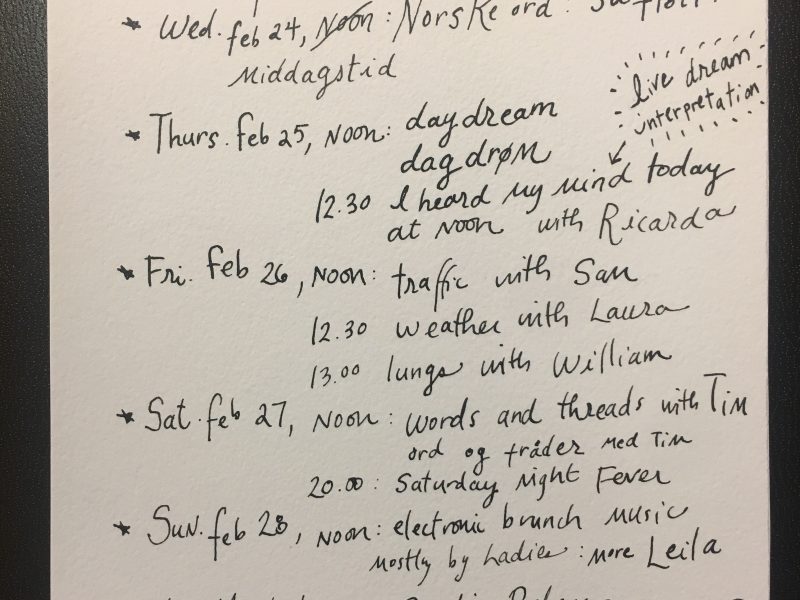 * Wed. feb 24, Noon : Norske ord :
Middagstid
live dream
interpretation
* Thurs. feb 25, Noon: daydream
dagdrøm
12.30 I heard my mind today
at Noon with Ricarda
* Fri. Feb 26, Noon: traffic with San
12.30 weather with Laura
13.00 lungs with William
* Sat. feb 27, Noon: words and threads with Tim
ord og tråder med Tim
20.00: Saturday night Fever
* Sun. feb 28, Noon: electronic brunch music
mostly by Ladies : more Leila